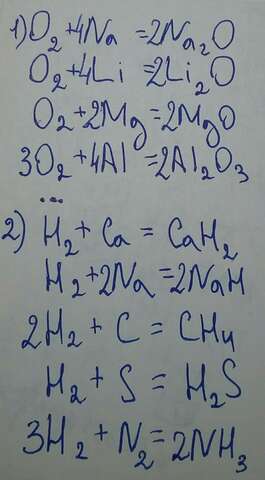 1) O₂+4Na =2Na₂O
O₂+4Li =2Li₂O
O₂+2Mg=2MgO
3O₂+4Al=2Al₂O₃
...
2) H₂+Ca = CaH₂
H₂+2Na=2NaH
2H₂ + C = CH₄
H₂ + S = H₂S
3H₂ + N₂=2NH₃